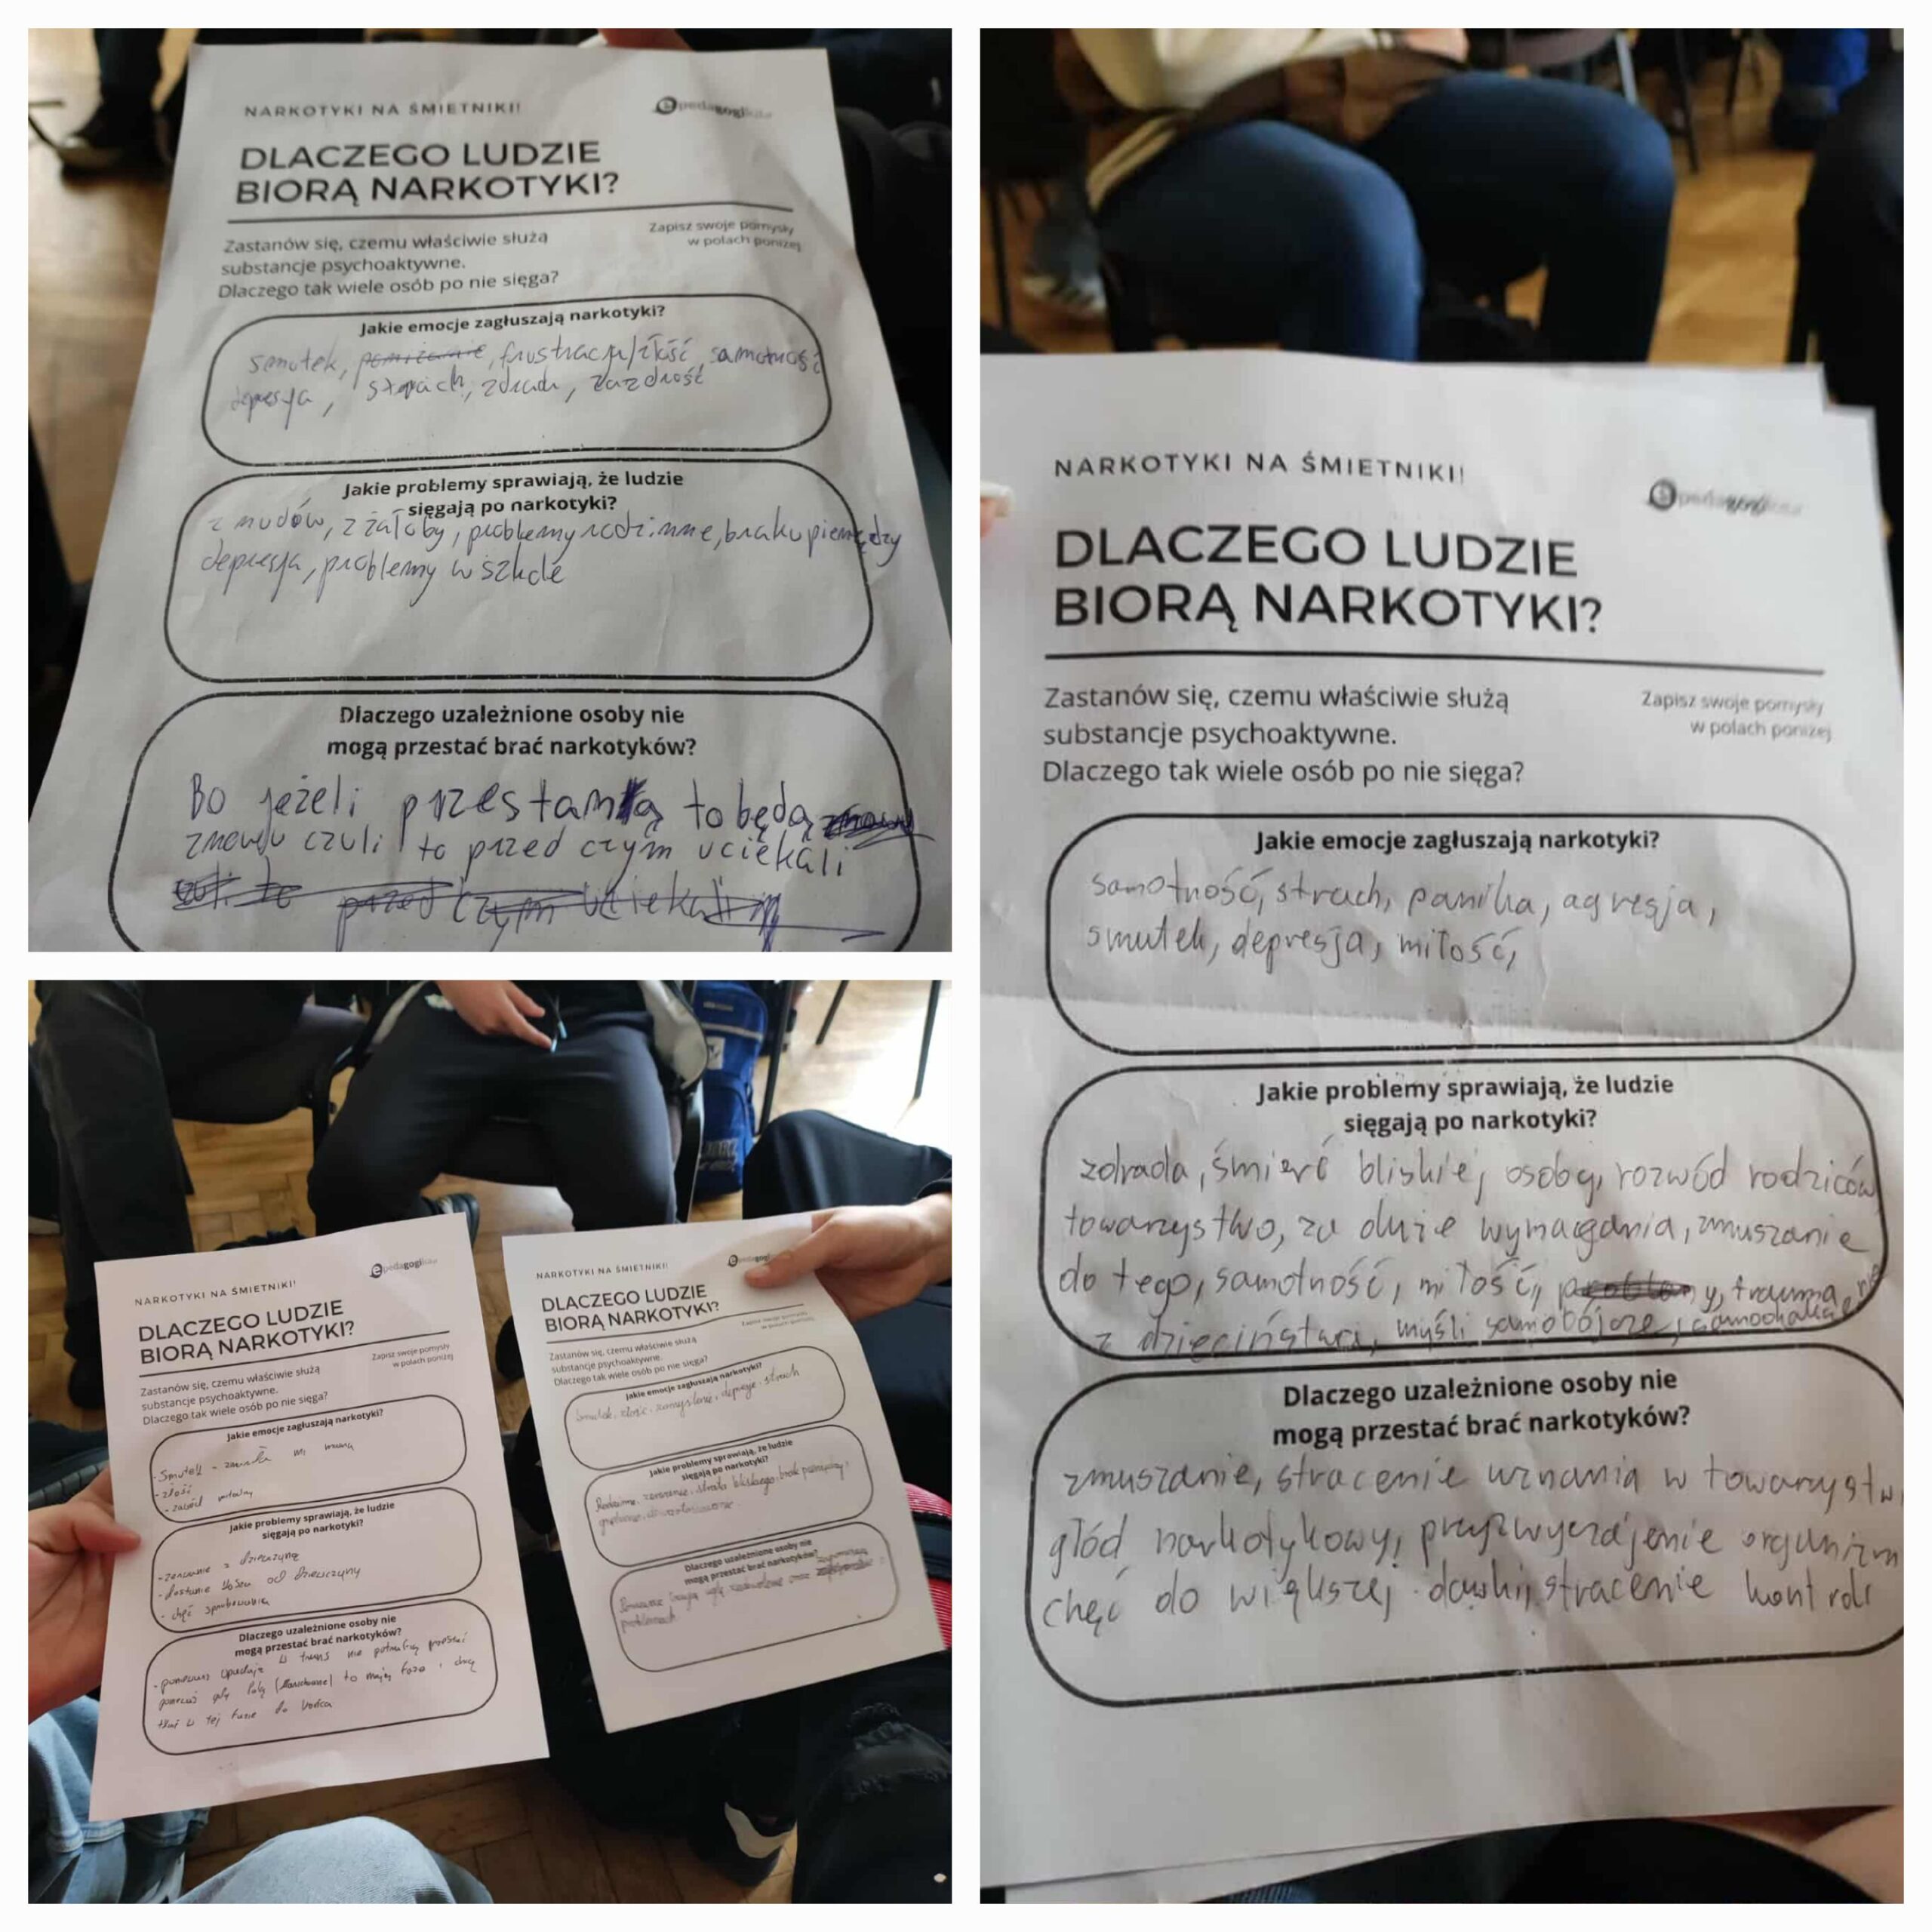 NARKOTYKI NA ŚMIETNIKI!
epedagogika
DLACZEGO LUDZIE
BIORĄ NARKOTYKI?
Zastanów się, czemu właściwie służą
substancje psychoaktywne.
Dlaczego tak wiele osób po nie sięga?
Zapisz swoje pomysły
w polach poniżej
Jakie emocje zagłuszają narkotyki?
smutek, frustracja/złość, samotność
depresja, strach, zdrada, zazdrość
Jakie problemy sprawiają, że ludzie
sięgają po narkotyki?
z nudów, z żałoby, problemy rodzinne, braku pieniędzy
depresja, problemy w szkole
Dlaczego uzależnione osoby nie
mogą przestać brać narkotyków?
Bo jeżeli przestaną to będą
znowu czuli to przed czym uciekali
przed czym uciekali
NARKOTYKI NA ŚMIETNIKI!
epedagogika
DLACZEGO LUDZIE
BIORĄ NARKOTYKI?
Zastanów się, czemu właściwie służą
substancje psychoaktywne.
Dlaczego tak wiele osób po nie sięga?
Zapisz swoje pomysły
w polach poniżej
Jakie emocje zagłuszają narkotyki?
samotność, strach, panika, agresja,
smutek, depresja, miłość,
Jakie problemy sprawiają, że ludzie
sięgają po narkotyki?
zdrada, śmierć bliskiej osoby, rozwód rodziców
towarzystwo, za duże wymagania, zmuszanie
do tego, samotność, miłość, trauma
z dzieciństwa, myśli samobójcze,
Dlaczego uzależnione osoby nie
mogą przestać brać narkotyków?
zmuszanie, stracenie uznania w towarzystw
głód narkotykowy, przyzwyczajenie organizm
chęć do większej dawki, stracenie kontroli
NARKOTYKI NA ŚMIETNIKI!
epedagogika
DLACZEGO LUDZIE
BIORĄ NARKOTYKI?
Zastanów się, czemu właściwie służą
substancje psychoaktywne.
Dlaczego tak wiele osób po nie sięga?
Zapisz swoje pomysły
w polach poniżej
Jakie emocje zagłuszają narkotyki?
- smutek
- złość
- zawód miłosny
Jakie problemy sprawiają, że ludzie
sięgają po narkotyki?
- zerwanie z dziewczyną
- dostanie kosza od dziewczyny
- chęć spróbowania
Dlaczego uzależnione osoby nie
mogą przestać brać narkotyków?
- ponieważ w trans nie potrafią przestać
ponieważ gdy to mają fazę i chcą
w tej fazie do końca
NARKOTYKI NA ŚMIETNIKI!
DLACZEGO LUDZIE
BIORĄ NARKOTYKI?
Zastanów się, czemu właściwie służą
substancje psychoaktywne.
Dlaczego tak wiele osób po nie sięga?
Zapisz swoje pomysły
w polach poniżej
Jakie emocje zagłuszają narkotyki?
Smutek, złość, depresje, strach
Jakie problemy sprawiają, że ludzie
sięgają po narkotyki?
Rodzinne, zerwanie, strata bliskiego, brak pieniędzy,
Dlaczego uzależnione osoby nie
mogą przestać brać narkotyków?
Ponieważ
problemach